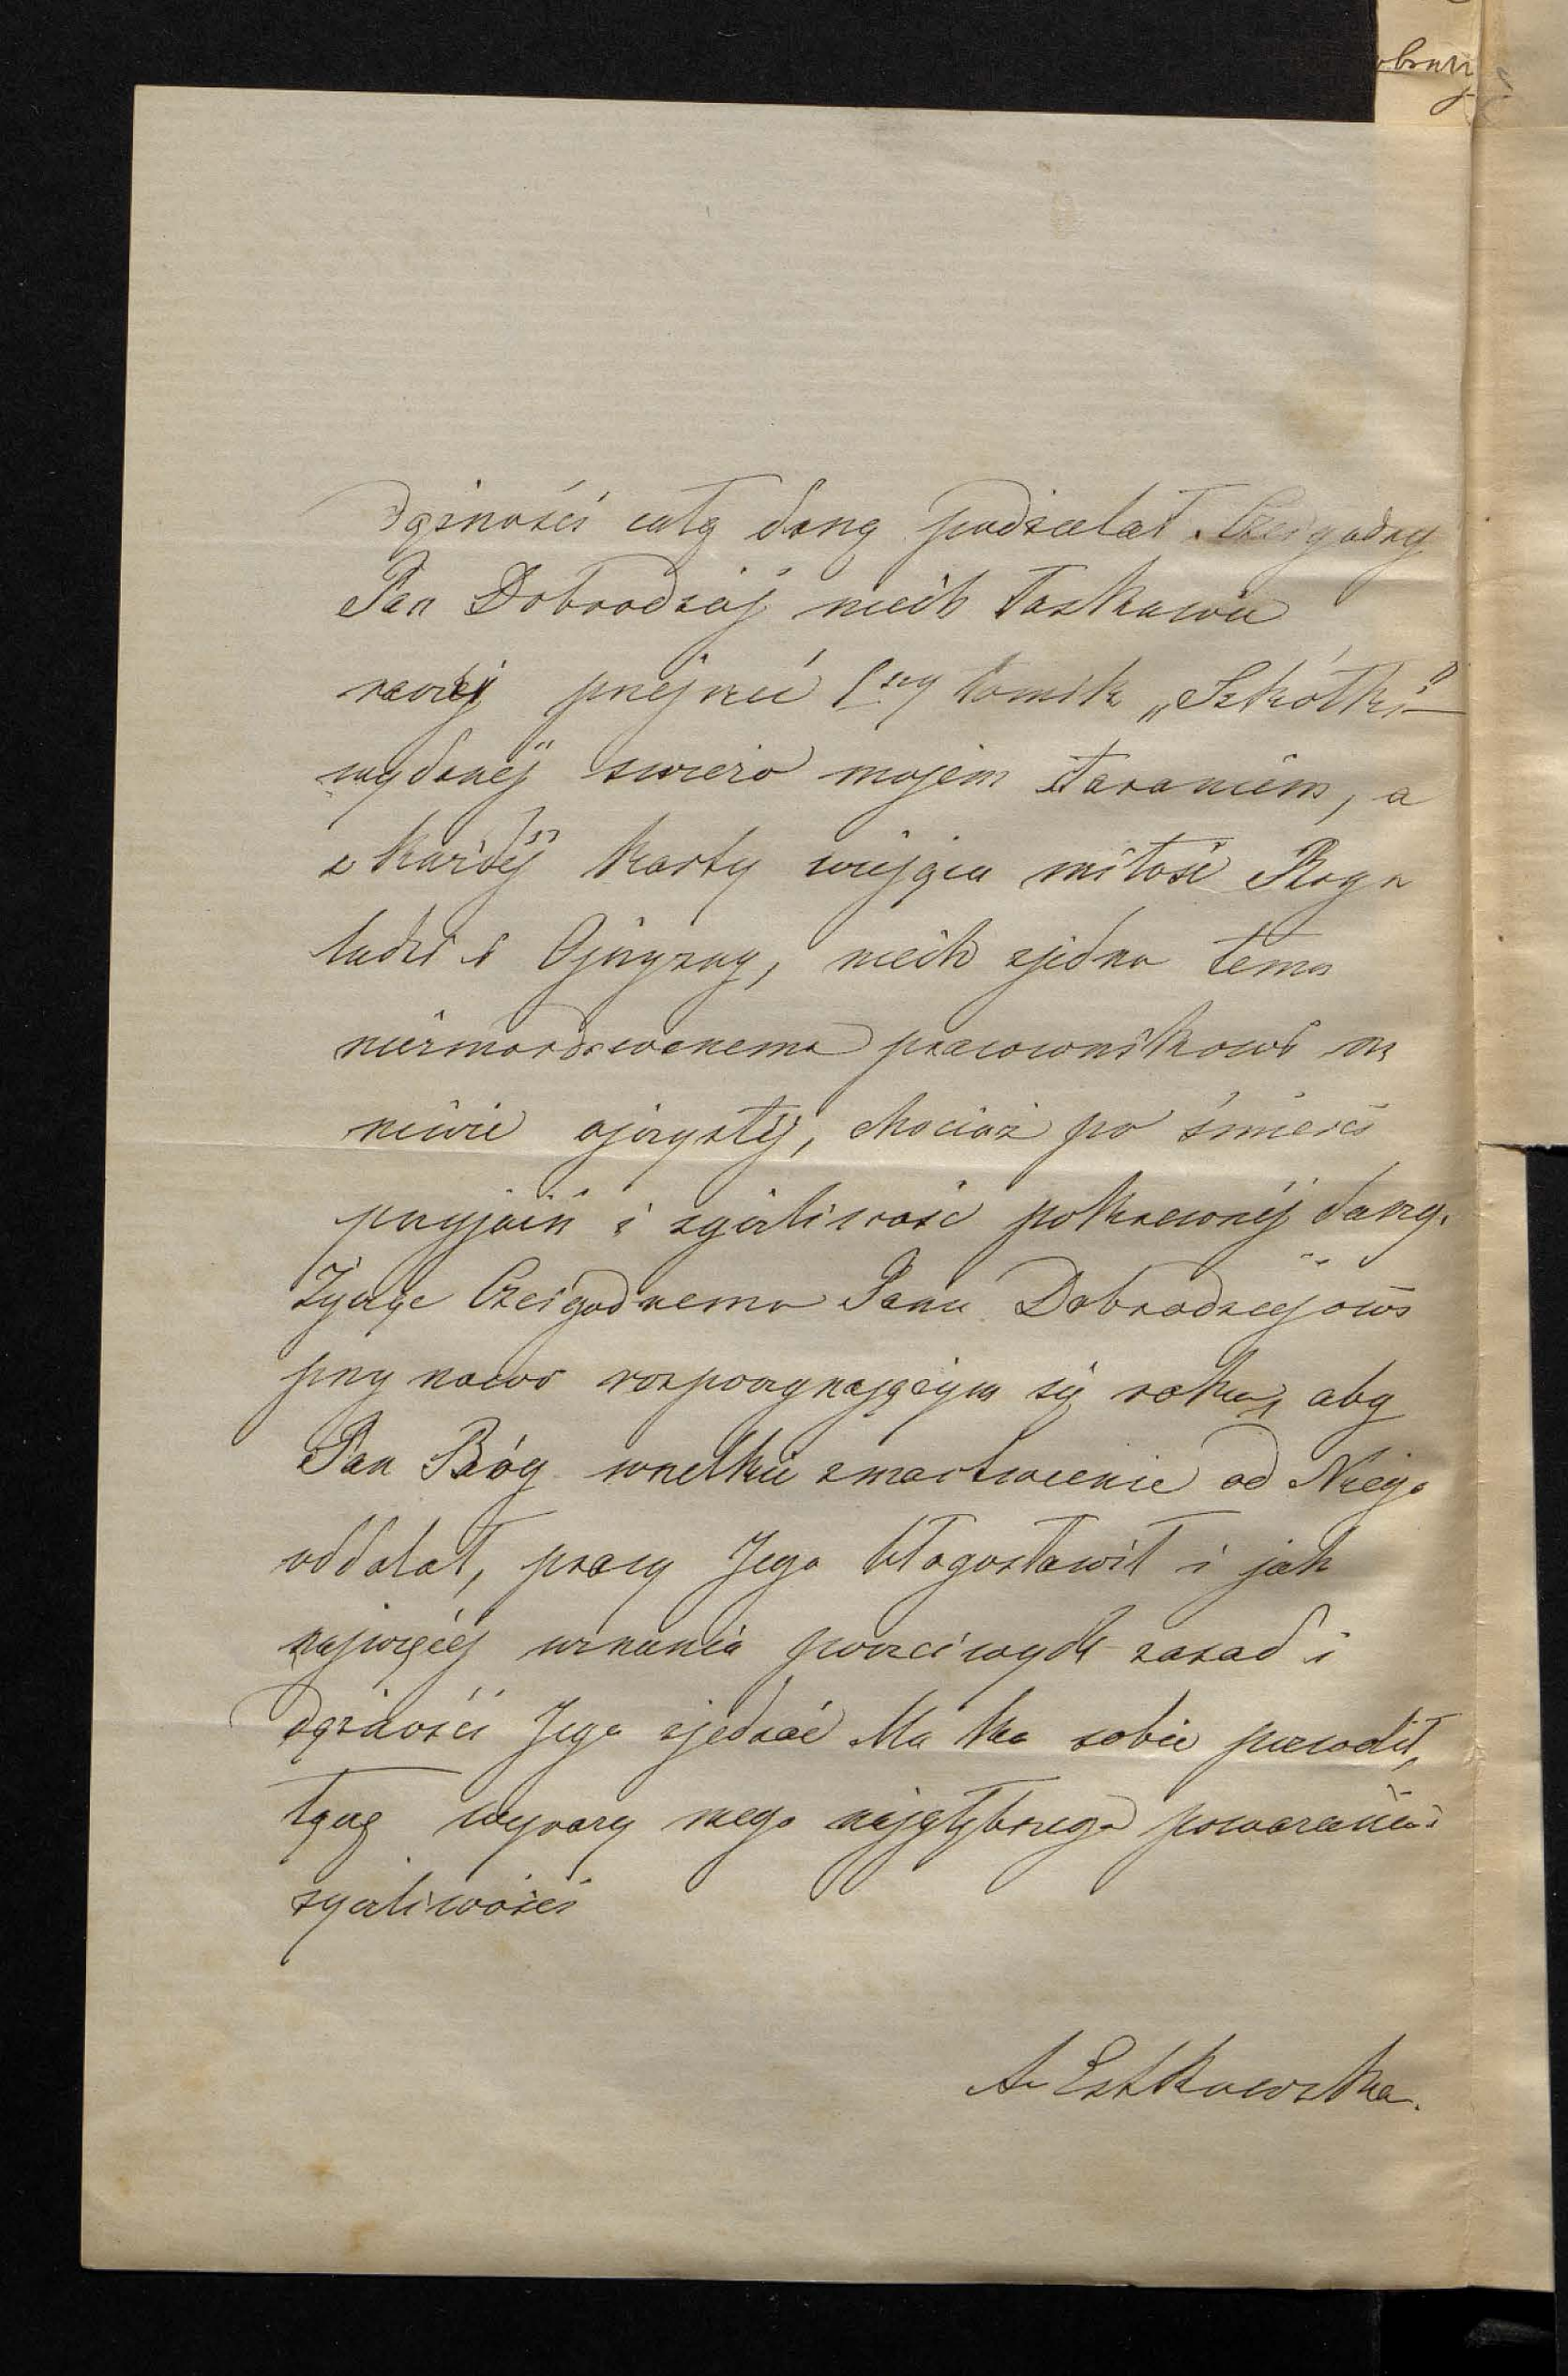 dążności całą duszą podzielał. Czcigodny
Pan Dobrodziéj niech łaskawie
raczéj przejrzéć 1szy tomik „Szkółki"
wydanéj świeżo mojém staraniem, a
z każdéj karty wiejąca miłość Boga
ludzi i Ojczyzny, niech zjedna temu
niezmordowanemu pracownikowi na
niwie ojczystéj, chociaż po śmierci
przyjaźń i życzliwość pokrewnéj duszy.
Życząc Czcigodnemu Panu Dobrodziejowi
przy nowo rozpoczynającym się roku, aby
Pan Bóg wszelkie zmartwienie od Niego
oddalał, pracy Jego błogosławił i jak
najwięcéj uznania poczciwych zasad i
dążności Jego zjednać Mu na sobie pozwolił,
łączę wyrazy mego najgłębszego poważania i
życzliwości
A Estkowska.